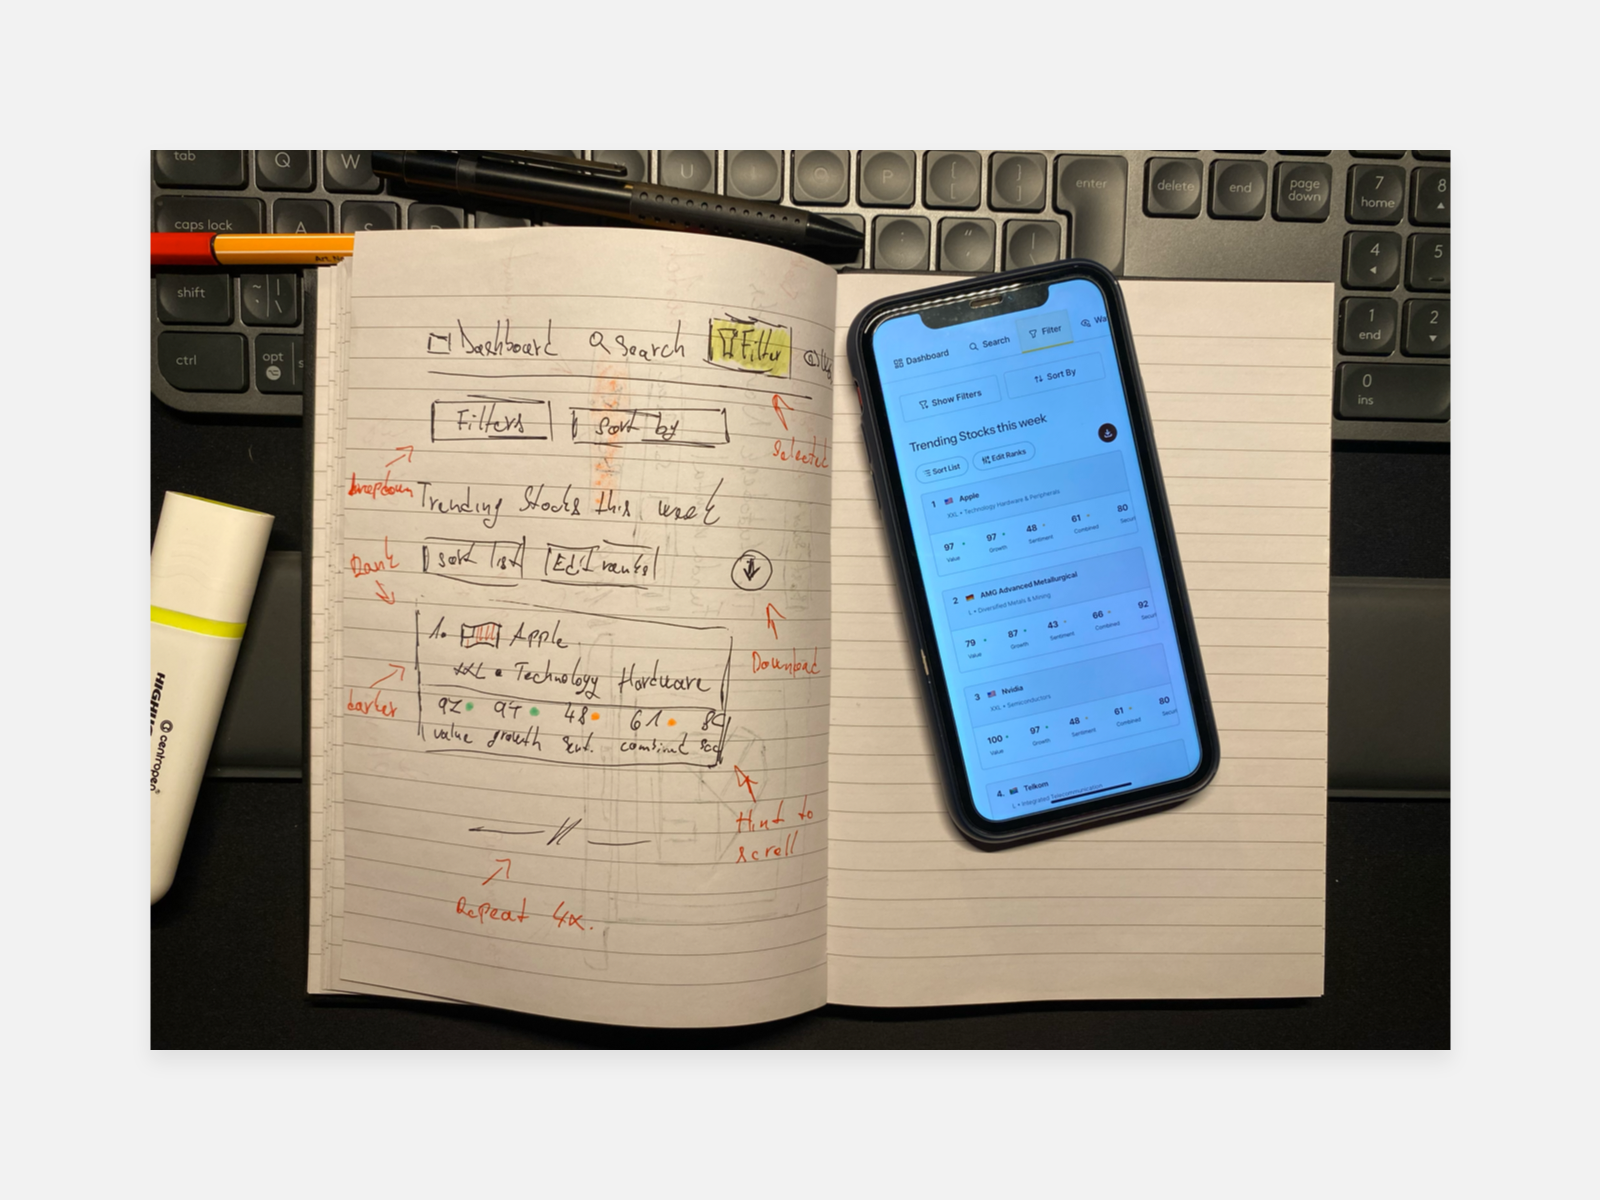 tab Q W U I O P [ { ] } enter delete end page down 7 home 8
caps lock A S D : ; " ' | \ 4 5
shift ~ ` | \ 1 end 2
ctrl opt s 0 ins
HIGHLI
centropen
Dashboard Search Filter
Selected
Filters Sort by
Dropdown
Trending Stocks this week
sort list Edit ranks
Dark
Download
1. Apple
XXL • Technology Hardware
darker
97 97 48 61 80
value growth Sent. combined
Hint to
scroll
Repeat 4x.
Dashboard Search Filter Wa
Show Filters Sort By
Trending Stocks this week
Sort List Edit Ranks
1 Apple
XXL • Technology Hardware & Peripherals
97 97 48 61 80
Value Growth Sentiment Combined Secur
2 AMG Advanced Metallurgical
L • Diversified Metals & Mining
79 87 43 66 92
Value Growth Sentiment Combined Secur
3 Nvidia
XXL • Semiconductors
100 97 48 61 80
Value Growth Sentiment Combined Secur
4. Telkom
L • Integrated Telecommunication